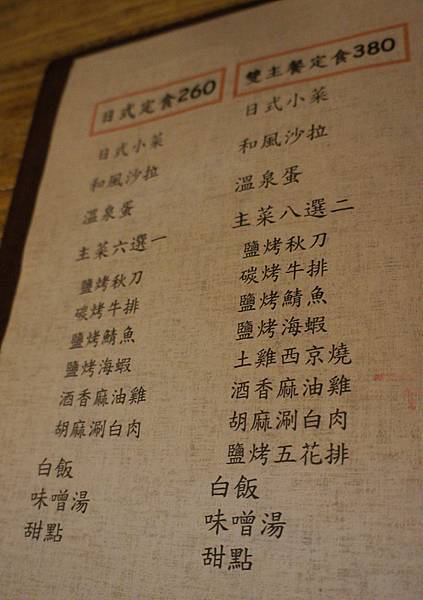 日式定食260
日式小菜
和風沙拉
溫泉蛋
主菜六選一
鹽烤秋刀
碳烤牛排
鹽烤鯖魚
鹽烤海蝦
酒香麻油雞
胡麻涮白肉
白飯
味噌湯
甜點
雙主餐定食380
日式小菜
和風沙拉
溫泉蛋
主菜八選二
鹽烤秋刀
碳烤牛排
鹽烤鯖魚
鹽烤海蝦
土雞西京燒
酒香麻油雞
胡麻涮白肉
鹽烤五花排
白飯
味噌湯
甜點